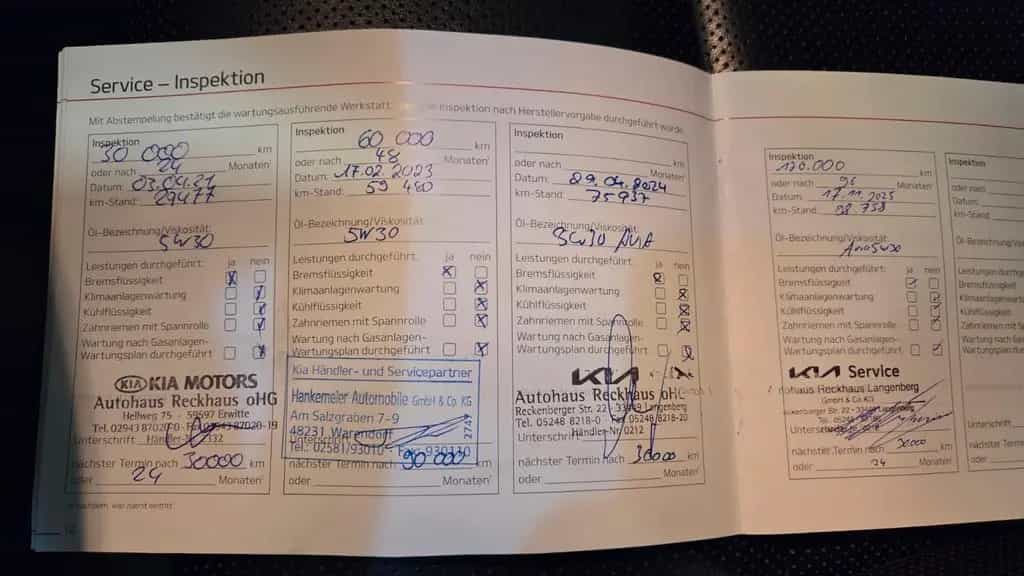 Service – Inspektion
Mit Abstempelung bestätigt die wartungsausführende Werkstatt, Inspektion nach Herstellervorgabe durchgeführt wurde.
Inspektion
30 000 km
oder nach 24 Monaten
Datum: 03.04.21
km-Stand: 29477
Öl-Bezeichnung/Viskosität:
5W30
Leistungen durchgeführt: ja nein
Bremsflüssigkeit
Klimaanlagenwartung
Kühlflüssigkeit
Zahnriemen mit Spannrolle
Wartung nach Gasanlagen-
Wartungsplan durchgeführt
KIA KIA MOTORS
Autohaus Reckhaus oHG
Hellweg 75 - 59597 Erwitte
Tel. 02943 87020-0 Fax 02943 87020-19
Unterschrift Händler 332
nächster Termin nach 30000 km
oder 24 Monaten
Inspektion
60 000 km
oder nach 48 Monaten
Datum: 17.02.2023
km-Stand: 59 480
Öl-Bezeichnung/Viskosität:
5W30
Leistungen durchgeführt: ja nein
Bremsflüssigkeit
Klimaanlagenwartung
Kühlflüssigkeit
Zahnriemen mit Spannrolle
Wartung nach Gasanlagen-
Wartungsplan durchgeführt
Kia Händler- und Servicepartner
Henkemeier Automobile GmbH & Co. KG
Am Salzgraben 7-9
48231 Warendorf
Tel.: 02581/93010 Fax 930110
27497
nächster Termin nach 90 000 km
oder Monaten
Inspektion
km
oder nach Monaten
Datum: 29.04.2024
km-Stand: 75937
Öl-Bezeichnung/Viskosität:
5W30
Leistungen durchgeführt: ja nein
Bremsflüssigkeit
Klimaanlagenwartung
Kühlflüssigkeit
Zahnriemen mit Spannrolle
Wartung nach Gasanlagen-
Wartungsplan durchgeführt
KIA
Autohaus Reckhaus oHG
Reckenberger Str. 22 - 33449 Langenberg
Tel. 05248 8218-0 Fax 05248 8218-20
Unterschrift Händler-Nr. 0212
nächster Termin nach 30000 km
oder Monaten
Inspektion
120.000 km
oder nach 96 Monaten
Datum: 17.11.2025
km-Stand: 98.758
Öl-Bezeichnung/Viskosität:
5W30
Leistungen durchgeführt: ja nein
Bremsflüssigkeit
Klimaanlagenwartung
Kühlflüssigkeit
Zahnriemen mit Spannrolle
Wartung nach Gasanlagen-
Wartungsplan durchgeführt
KIA Service
Autohaus Reckhaus Langenberg
GmbH & Co.KG
nächster Termin nach 30000 km
oder 24 Monaten
Inspektion
oder nach
Datum:
km-Stand:
Öl-Bezeichnung/Visk
Leistungen durchgef
Bremsflüssigkeit
Klimaanlagenwartu
Kühlflüssigkeit
Zahnriemen mit Sp
Wartung nach Gas
Wartungsplan dur
Unterschrift:
nächster Termin
oder